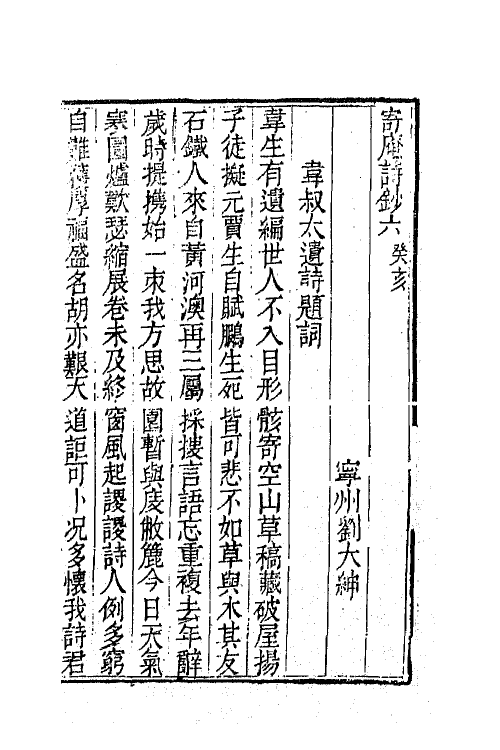 寄庵詩鈔六 癸亥
寧州劉大紳
韋叔太遺詩題詞
韋生有遺編世人不入目形骸寄空山草稿藏破屋揚
子徒擬元賈生自賦鵬生死皆可悲不如草與木其友
石鐵人來自黃河澳再三屬採摟言語忘重複去年辭
歲時提攜始一束我方思故園暫與庋敝簏今日天氣
寒圍爐歎瑟縮展卷未及終窗風起謖謖詩人例多窮
自難得厚福盛名胡亦艱天道詎可卜况多懷我詩君